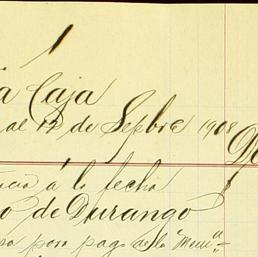 1
a Caja
al 12 de Sepbre 1908
cia á la fecha
o de Durango
para pago de la